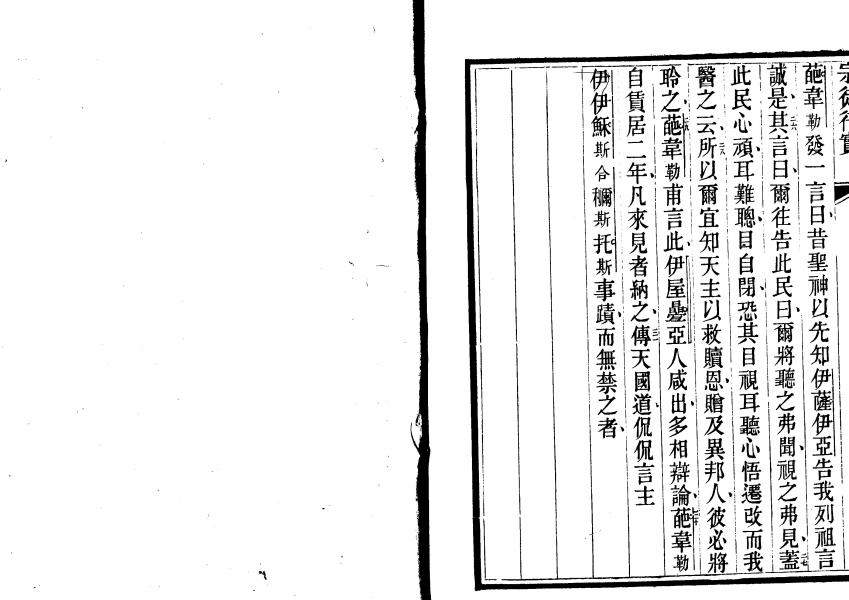 宗徒行實
葩韋勒發一言曰昔聖神以先知伊薩伊亞告我列祖言
誠是其言曰爾徃告此民曰爾將聽之弗聞視之弗見蓋
此民心頑耳難聰目自閉恐其目視耳聽心悟遷改而我
醫之云所以爾宜知天主以救贖恩贈及異邦人彼必將
聆之葩韋勒甫言此伊屋疊亞人咸出多相辯論葩韋勒
自賃居二年凡來見者納之傳天國道侃侃言主
伊伊穌斯合穪斯托斯事蹟而無禁之者